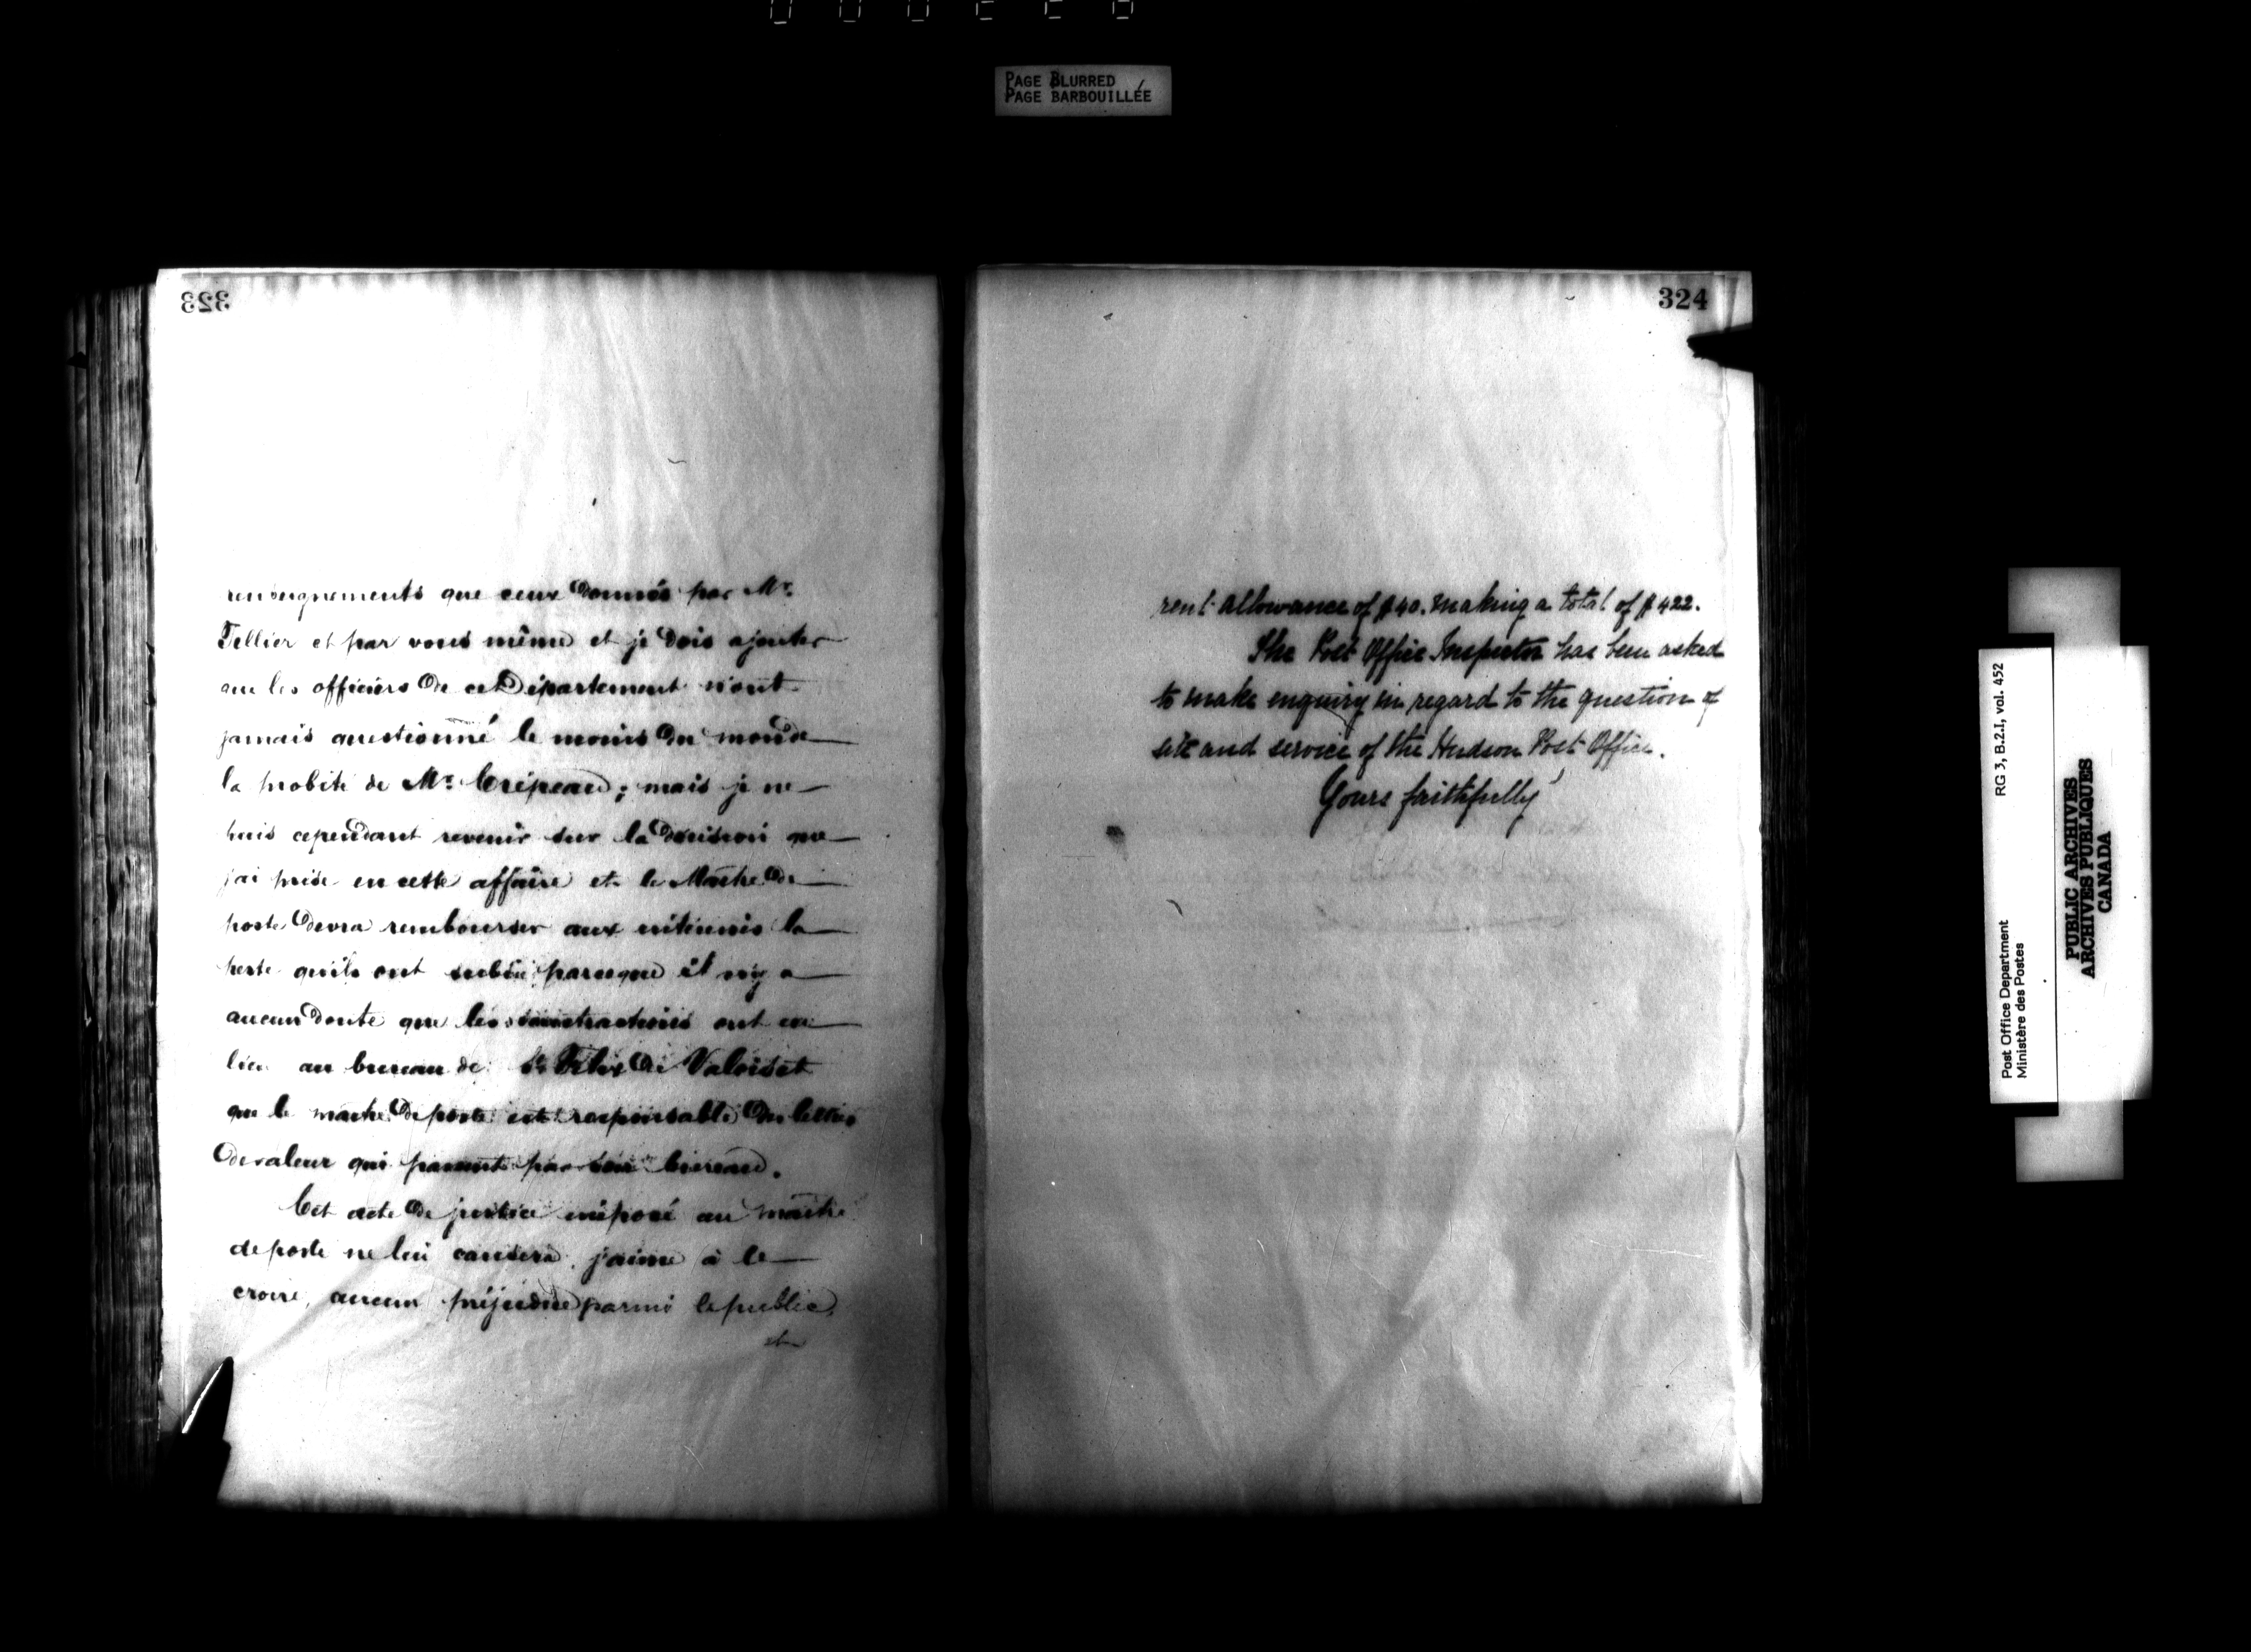 PAGE BLURRED
PAGE BARBOUILLÉE
323
renseignements que ceux donnés par Mr.
Tellier et par vous même et je dois ajouter
que les officiers de cet Département n'ont
jamais questionné le moins du monde
la probité de Mr. Crépeau; mais je ne
puis cependant revenir sur la décision que
j'ai prise en cette affaire et le Maître de
poste devra rembourser aux intéressés la
perte qu'ils ont subie parceque il n'y a
aucun doute que les soustractions ont eu
lieu au bureau de St Félix de Valois et
que le maître de poste est responsable des lettres
de valeur qui passent par son bureau.
Cet acte de justice imposé au maître
de poste ne lui causera, j'aime à le
croire, aucun préjudice parmi le public,
et
324
rent allowance of $40. making a total of $422.
The Post Office Inspector has been asked
to make enquiry in regard to the question of
site and service of the Hudson Post Office.
Yours faithfully
RG 3, B.2.I, vol. 452
Post Office Department
Ministère des Postes
PUBLIC ARCHIVES
ARCHIVES PUBLIQUES
CANADA